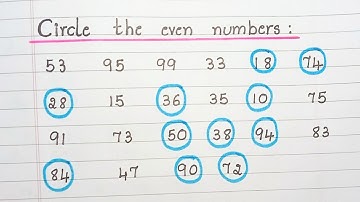 Circle the even numbers :
53 95 99 33 18 74
28 15 36 35 10 75
91 73 50 38 94 83
84 47 90 72